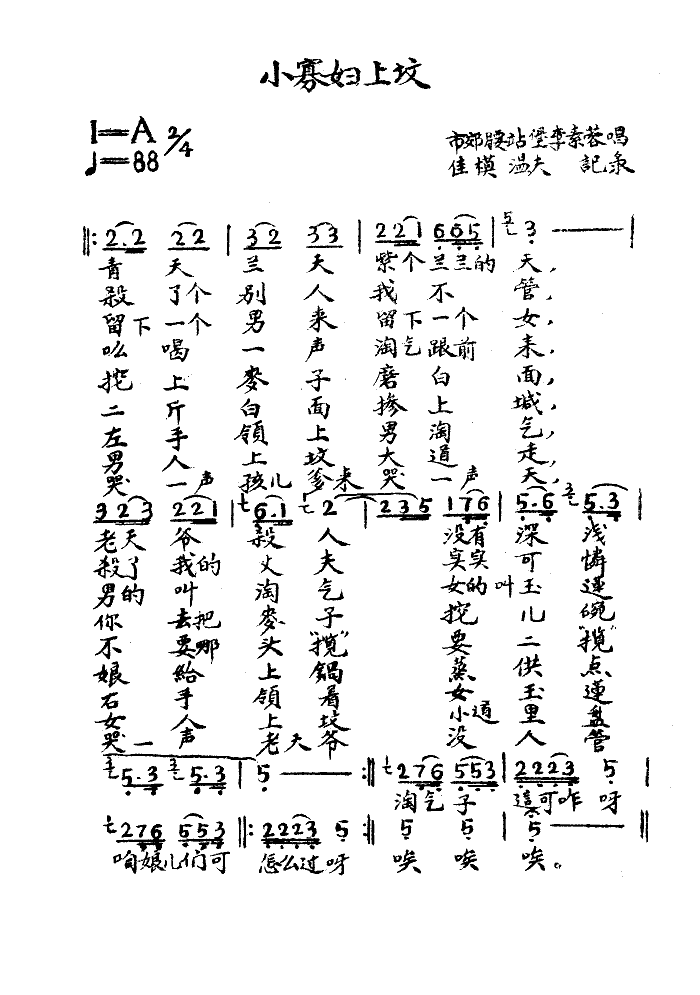 小寡妇上坟
1=A 2/4
♩=88
市郊腰站堡李素蓉唱
佳模 温夫 記录
‖: 2·2 2 2 | 3 2 3 3 | 2 2 1 6 6 5 | 3 — |
青 天 兰 天 紫个兰兰的 天,
殺 了个 别 人 我 不 管,
留下 一个 男 来 留下 一个 女,
吆 喝 一 声 淘气 跟前 来,
挖 上 麥 子 磨 白 面,
二 斤 白 面 掺 上 堿,
左 手 領 上 男 淘 气,
男 人 上 坟 大 道 走,
哭 一声 孩儿 爹来 哭 一声 天,
3 2 3 2 2 1 | 6·1 2 | 2 3 5 1 7 6 | 5·6 5·3 |
老天 爷 殺 人 没有 深 浅
殺了 我的 丈 夫 实实 可 憐
男的 叫 淘 气 女的 叫 玉 莲
你 去把 麥 子 挖 儿 碗
不 要 那 头 "揽" 要 二 "揽"
娘 給 上 鍋 蒸 供 点
右 手 領 着 女 玉 莲
女 人 上 坟 小道 里 盘
哭 一 声 老天 爷 没 人 管
5·3 5·3 | 5 — :‖ 2 7 6 5 5 3 | 2 2 2 3 5 |
淘气 子 這可咋 呀
2 7 6 5 5 3 ‖: 2 2 2 3 5 :‖ 5 5 | 5 — ‖
咱娘儿们可 怎么过呀 唉 唉 唉。